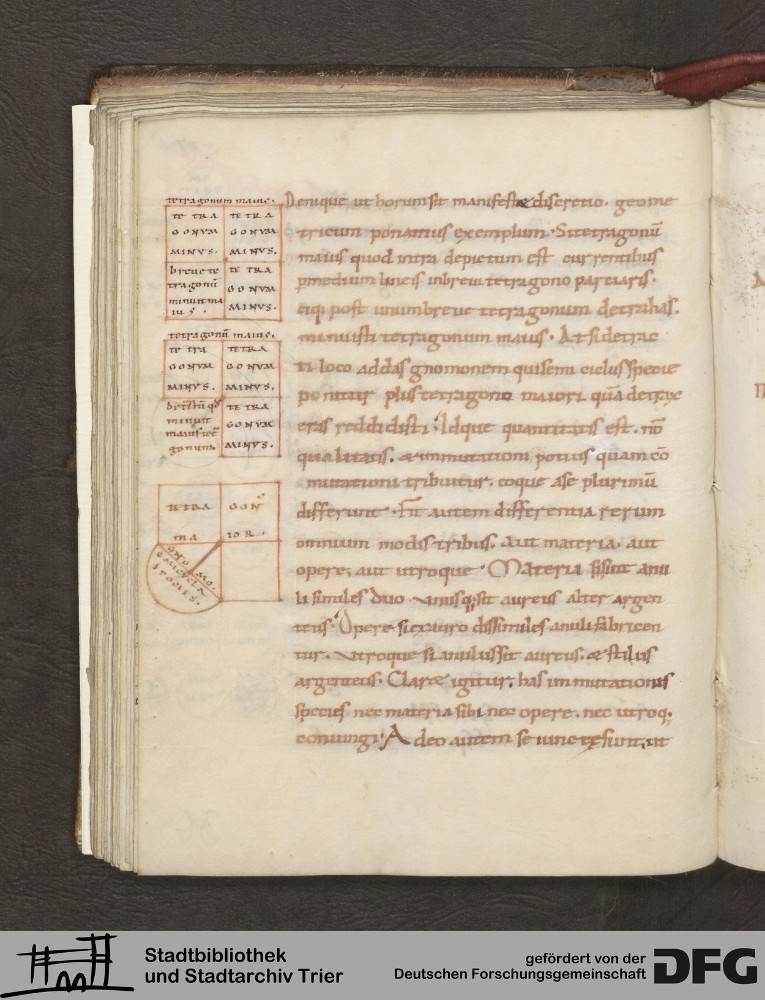 tetragonum maius.
TETRA GONUM MINUS.
TETRA GONUM MINUS.
breve te
tragonū
minuit ma
ius.
TETRA GONUM MINUS.
tetragonū maius.
TETRA GONUM MINUS.
TETRA GONUM MINUS.
minuit
gonum.
TETRA GONUM MINUS.
TETRA GON
MA IOR.
Denique ut horum sit manifestae discretio. geome
tricum ponamus exemplum. Sit tetragonū
maius quod intra depictum est currentibus
p medium lineis in breui tetragono partiaris.
eiq; post unum breue tetragonum detrahas.
minuisti tetragonum maius. At si detrac
ti loco addas gnomonem qui semicicli specie
ponitur plus tetragono maiori quā detrax
eras reddidisti. Idque quantitatis est. nō
qualitatis. & inmutationi potius quam cō
mutationi tribuitur. eoque a se plurimū
differunt. Fit autem differentia rerum
omnium modis tribus. Aut materia. aut
opere. aut utroque. Materia si sint anu
li similes duo unusq; sit aureus alter argen
teus. Opere si ex auro dissimiles anuli fabricen
tur. Utroque si anulus sit aureus. & stilus
argenteus. Clare igitur. has inmutationis
species nec materia sibi nec opere. nec utroq;
coniungi. Adeo autem seiunctę sunt. ut
Stadtbibliothek
und Stadtarchiv Trier
gefördert von der
Deutschen Forschungsgemeinschaft
DFG